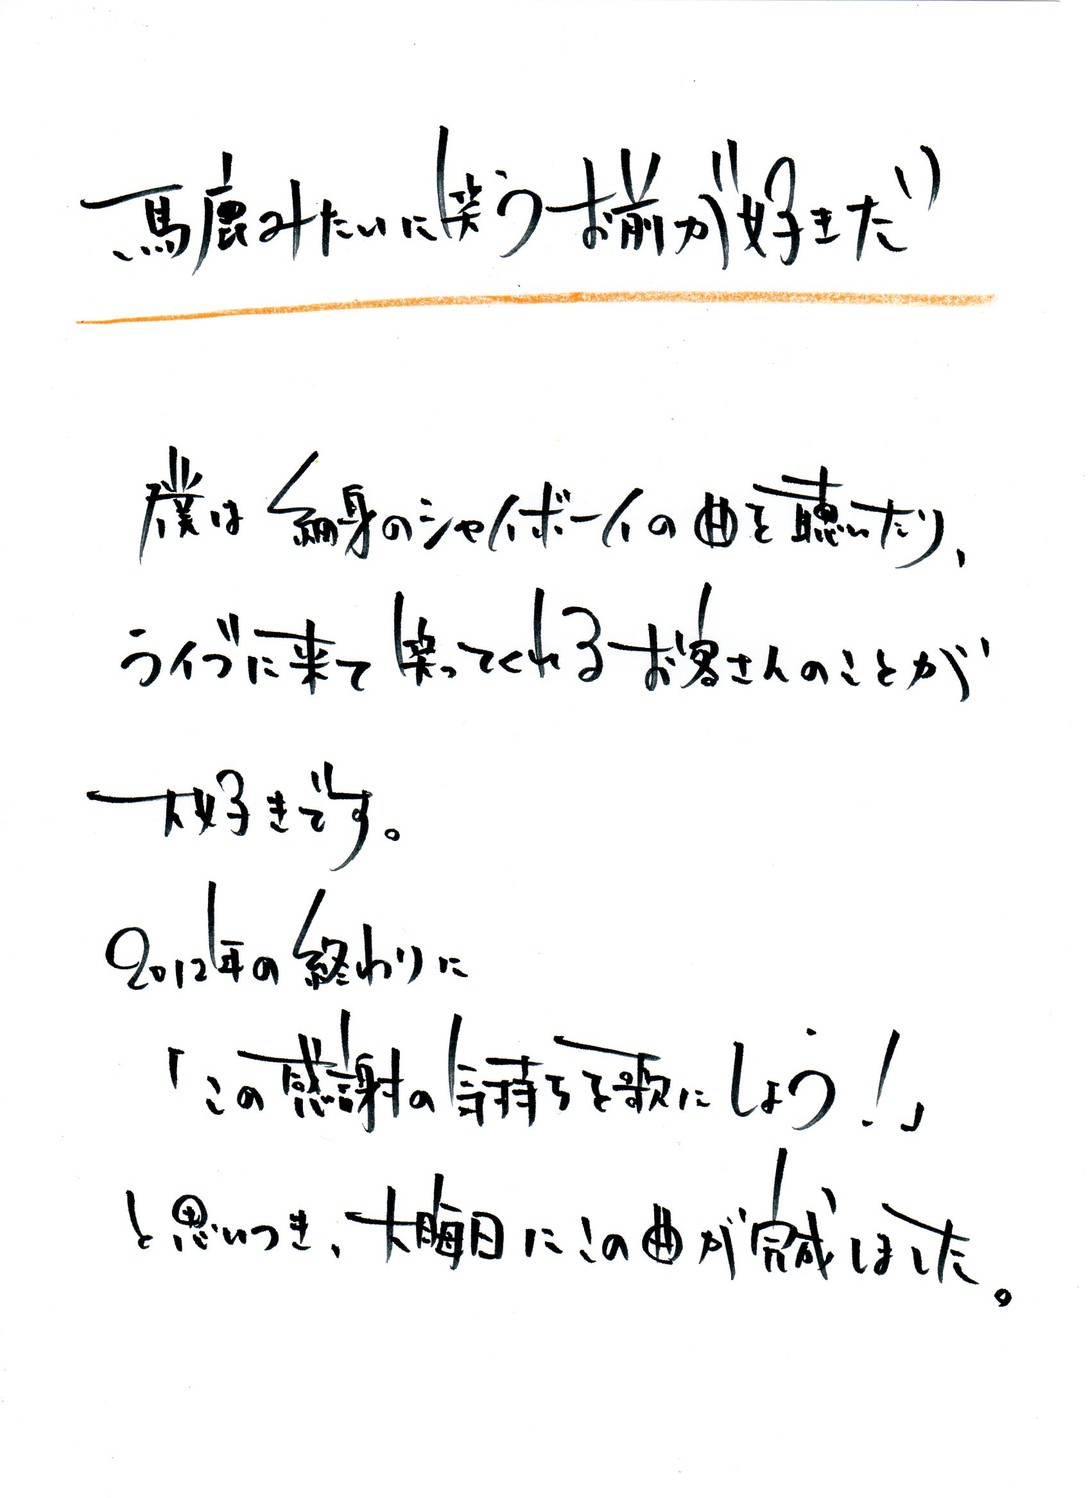 馬鹿みたいに笑うお前が好きだ
僕は細身のシャイボーイの曲を聴いたり、
ライブに来て笑ってくれるお客さんのことが
大好きです。
2012年の終わりに
「この感謝の気持ちを歌にしよう！」
と思いつき、大晦日にこの曲が完成しました。